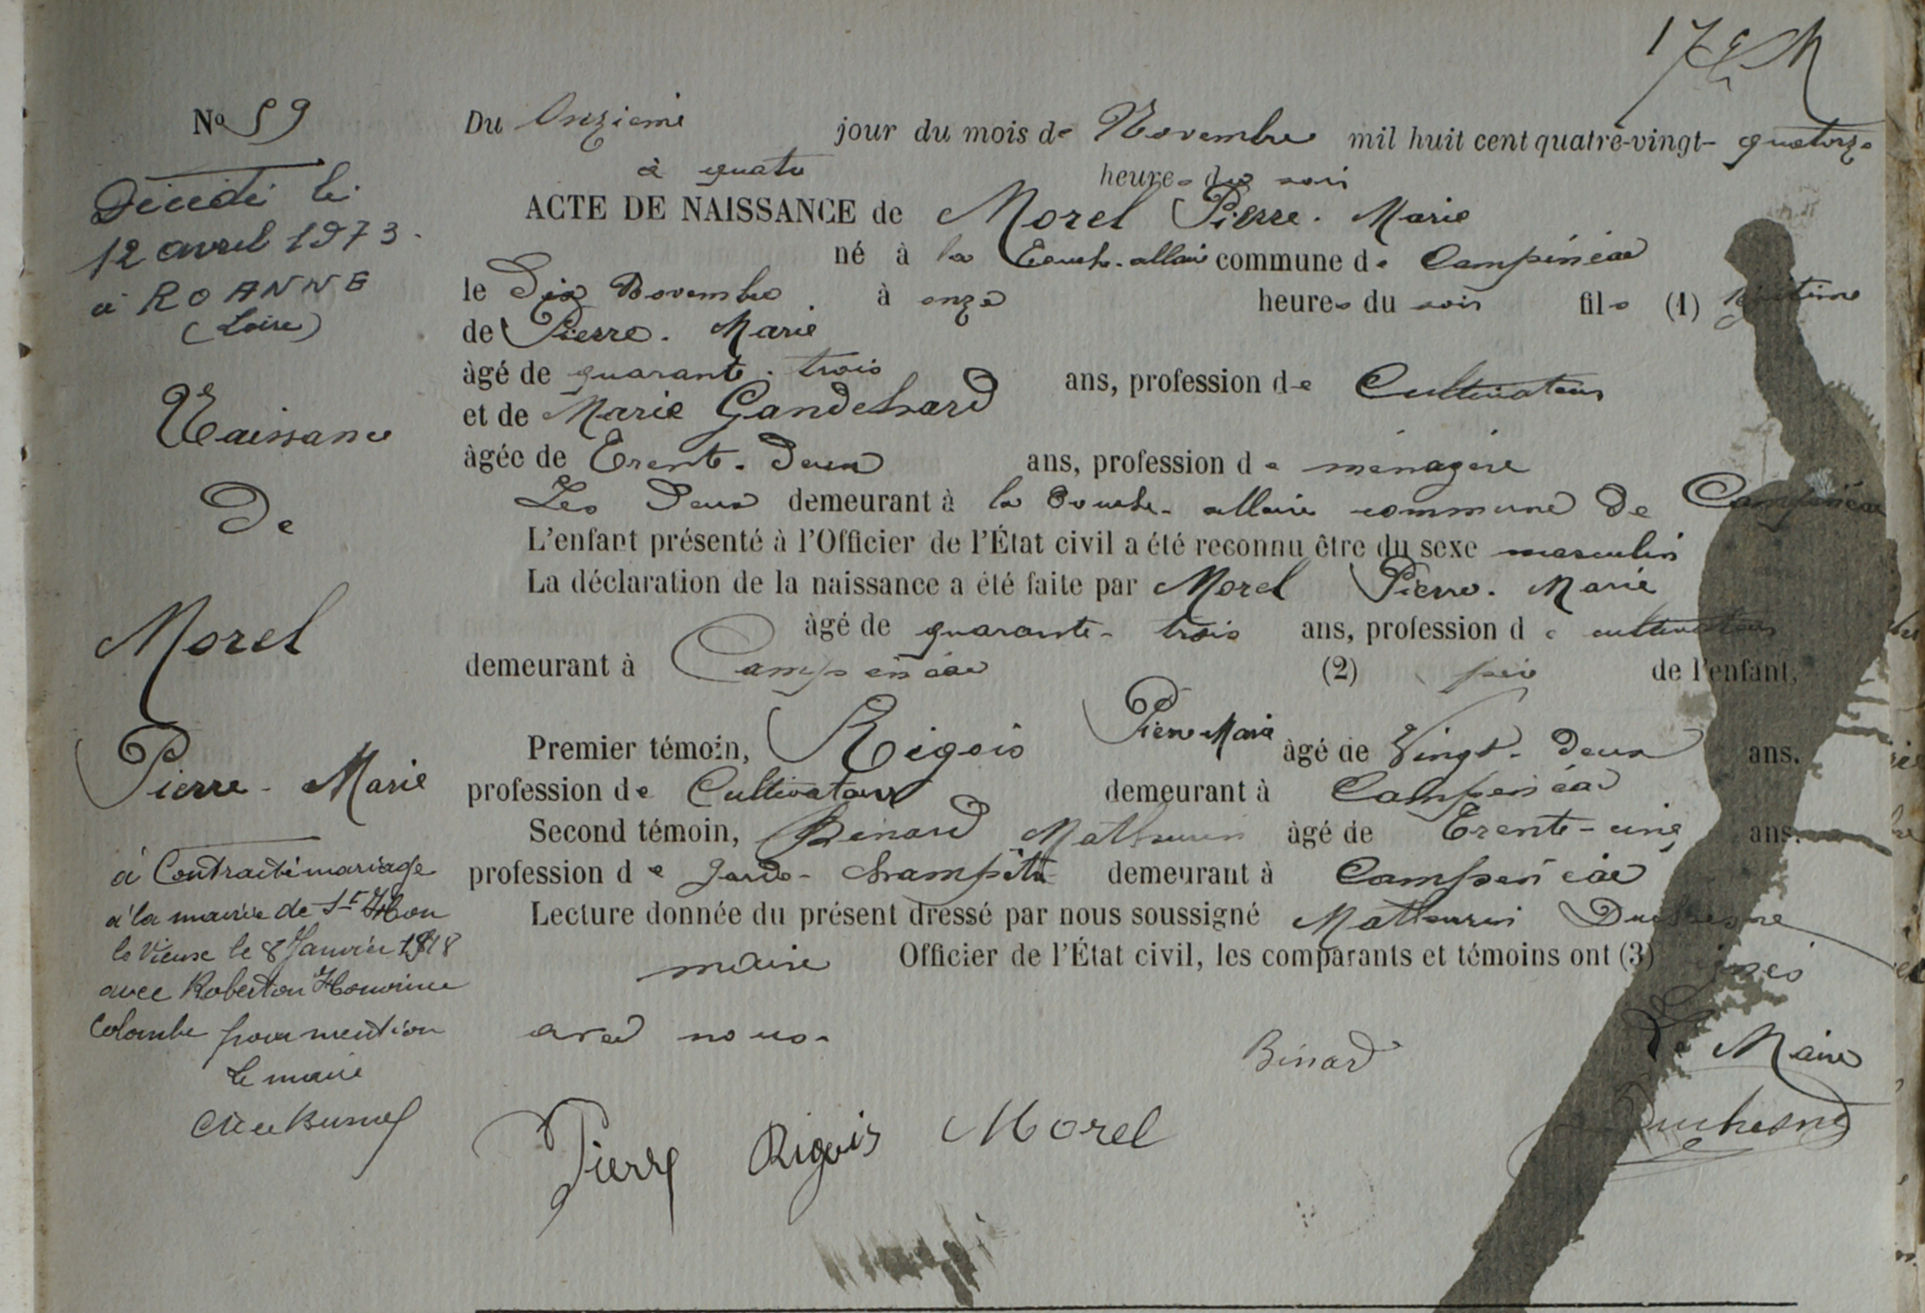 17e M
No 59
Décédé le
12 avril 1973.
à ROANNE
(Loire)
Naissance
de
Morel
Pierre-Marie
à Contracté mariage
à la mairie de St Haon
le Vieux le 8 Janvier 1918
avec Roberton Honorine
Colombe pour mention
Le maire
Du Onzième jour du mois de Novembre mil huit cent quatre-vingt-quatorze
à quatre heures du soir
ACTE DE NAISSANCE de Morel Pierre-Marie
né à la Touche-allair commune de Campénéac
le Dix Novembre à onze heures du soir fils (1) légitime
de Pierre-Marie
âgé de quarante-trois ans, profession de Cultivateur
et de Marie Gandehard
âgée de Trente-deux ans, profession de ménagère
Les Deux demeurant à la Touche-allaire commune de Campénéac
L'enfant présenté à l'Officier de l'État civil a été reconnu être du sexe masculin
La déclaration de la naissance a été faite par Morel Pierre-Marie
âgé de quarante-trois ans, profession de cultivateur
demeurant à Campénéac (2) père de l'enfant,
Premier témoin, Rigois Pierre Marie âgé de Vingt-deux ans.
profession de Cultivateur demeurant à Campénéac
Second témoin, Binard Mathurin âgé de Trente-cinq ans.
profession de garde-champêtre demeurant à Campénéac
Lecture donnée du présent dressé par nous soussigné Mathurin Duchesne
maire Officier de l'État civil, les comparants et témoins ont (3) signés
avec nous.
Binard
Le Maire
Pierre Rigois Morel
Duchesne